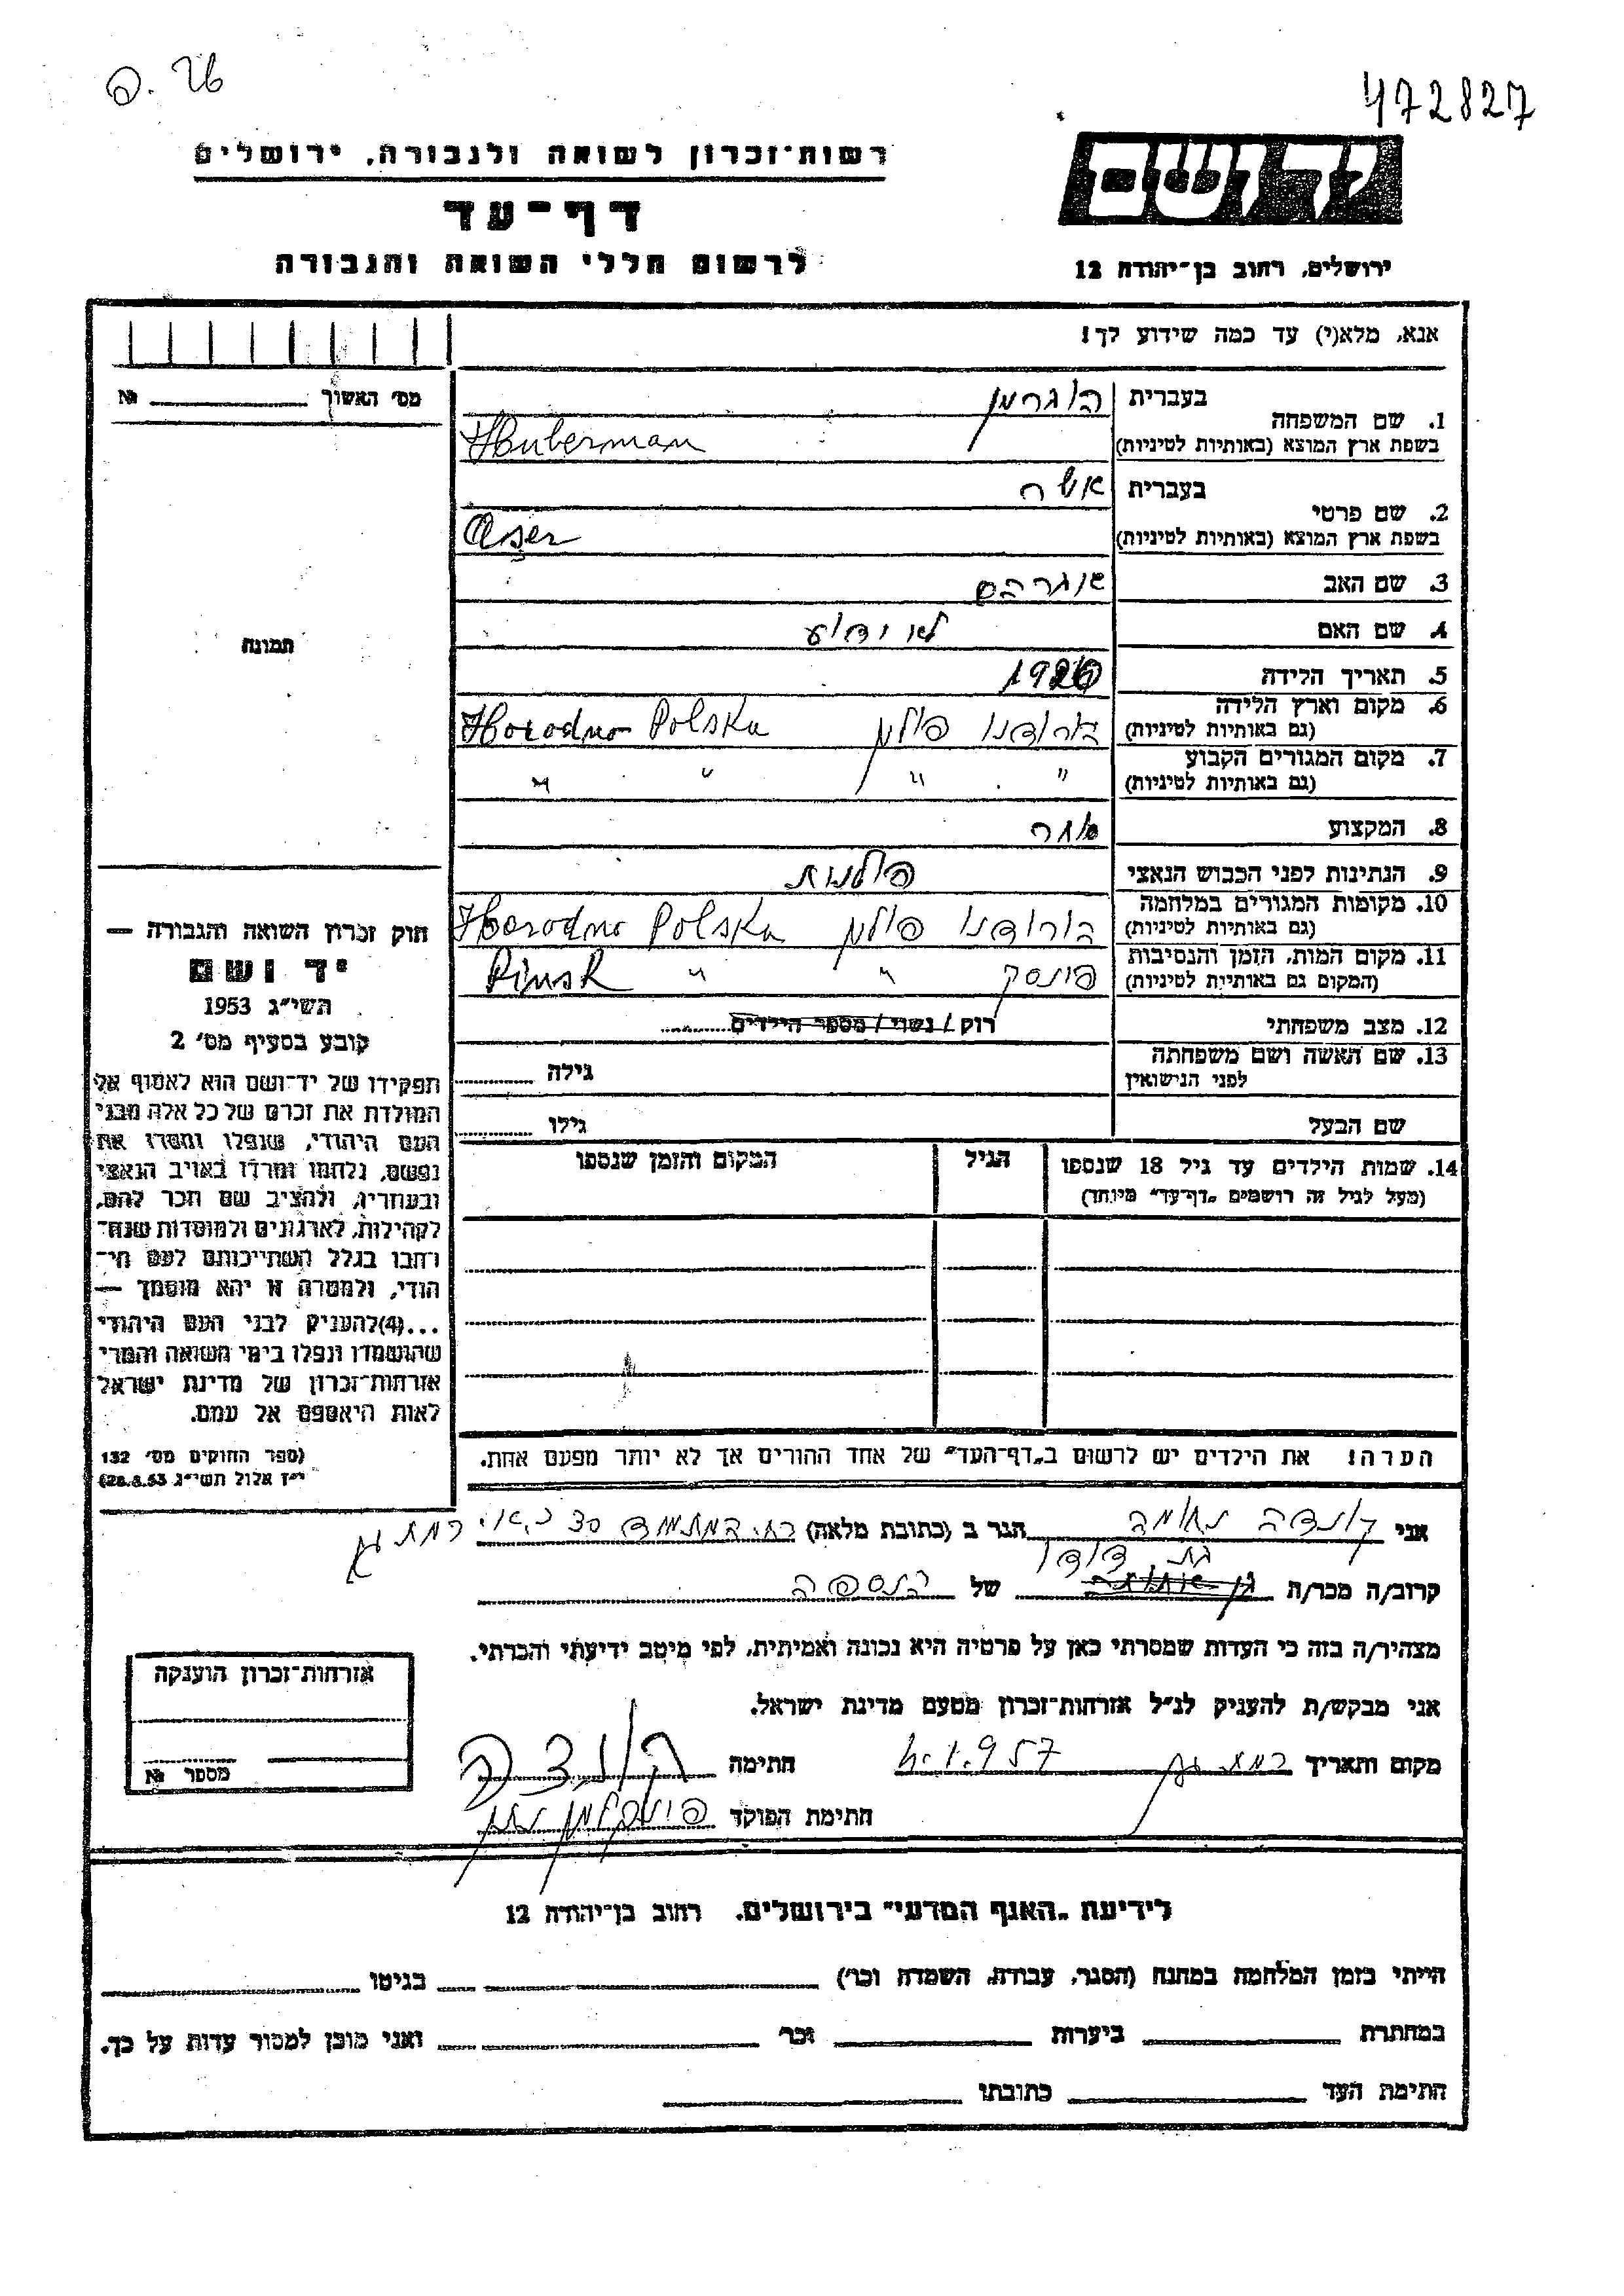 472827
יד ושם
רשות־זכרון לשואה ולגבורה, ירושלים
דף־עד
לרשום חללי השואה והגבורה
ירושלים, רחוב בן־יהודה 12
אנא, מלא(י) עד כמה שידוע לך!
מס׳ האשור № 
1. שם המשפחה
בעברית הוברמן
בשפת ארץ המוצא (באותיות לטיניות) Huberman
2. שם פרטי
בעברית אשר
בשפת ארץ המוצא (באותיות לטיניות) Aser
3. שם האב אברהם
4. שם האם לא ידוע
5. תאריך הלידה 1926
6. מקום וארץ הלידה
(גם באותיות לטיניות) הורודנו פולין Horodno Polska
7. מקום המגורים הקבוע
(גם באותיות לטיניות) " " " "
8. המקצוע סוחר
9. הנתינות לפני הכבוש הנאצי פולנית
10. מקומות המגורים במלחמה
(גם באותיות לטיניות) הורודנו פולין Horodno Polska
11. מקום המות, הזמן והנסיבות
(המקום גם באותיות לטיניות) פינסק " " Pinsk
12. מצב משפחתי רוק / נשוי / מספר הילדים
13. שם האשה ושם משפחתה
לפני הנישואין גילה
שם הבעל גילו
14. שמות הילדים עד גיל 18 שנספו
(מעל לגיל זה רושמים „דף־עד" מיוחד)
הגיל
המקום והזמן שנספו
הערה! את הילדים יש לרשום ב„דף־העד" של אחד ההורים אך לא יותר מפעם אחת.
תמונה
חוק זכרון השואה והגבורה —
יד ושם
תשי״ג 1953
קובע בסעיף מס׳ 2
תפקידו של יד־ושם הוא לאסוף אל
המולדת את זכרם של כל אלה מבני
העם היהודי, שנפלו ומסרו את
נפשם, נלחמו ומרדו באויב הנאצי
ובעוזריו, ולהציב שם וזכר להם,
לקהילות, לארגונים ולמוסדות שנח־
רבו בגלל השתייכותם לעם הי־
הודי, ולמטרה זו יהא מוסמך —
...(4) להעניק לבני העם היהודי
שהושמדו ונפלו בימי השואה והמרי
אזרחות־זכרון של מדינת ישראל
לאות היאספם אל עמם.
(ספר החוקים מס׳ 132
י״ז אלול תשי״ג 28.8.53)
אני קונדה נחומה הגר ב (כתובת מלאה) רח׳ המתמיד 30 רמת גן
בת דודו
קרוב/ה מכר/ה של הנספה
מצהיר/ה בזה כי העדות שמסרתי כאן על פרטיה היא נכונה ואמיתית, לפי מיטב ידיעתי והכרתי.
אני מבקש/ת להעניק לנ״ל אזרחות־זכרון מטעם מדינת ישראל.
מקום ותאריך רמת גן 4.1.957 חתימה קונדה
חתימת הפוקד
אזרחות־זכרון הוענקה
מספר №
לידיעת „האגף המדעי" בירושלים. רחוב בן־יהודה 12
הייתי בזמן המלחמה במחנה (הסגר, עבודת, השמדה וכו׳) בגיטו
במחתרת ביערות וכו׳ ואני מוכן למסור עדות על כך.
חתימת העד כתובתו